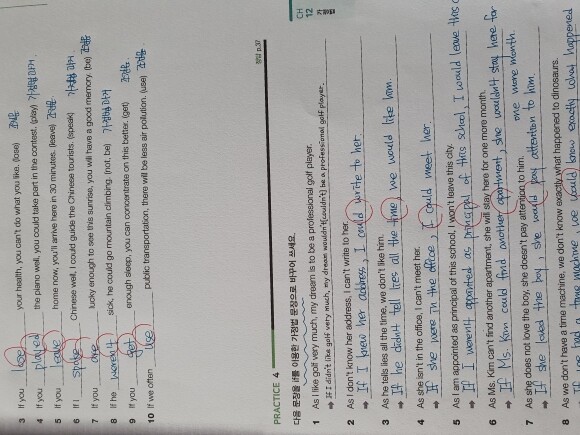 3 If you lose your health, you can't do what you like. (lose) 조건문
4 If you played the piano well, you could take part in the contest. (play) 가정법 과거
5 If you leave home now, you'll arrive here in 30 minutes. (leave) 조건문
6 If I spoke Chinese well, I could guide the Chinese tourists. (speak) 가정법 과거
7 If you are lucky enough to see this sunrise, you will have a good memory. (be) 조건문
8 If he weren't sick, he could go mountain climbing. (not, be) 가정법 과거
9 If you get enough sleep, you can concentrate on this better. (get) 조건문
10 If we often use public transportation, there will be less air pollution. (use) 조건문
정답 p.37
PRACTICE 4
다음 문장을 if를 이용한 가정법 문장으로 바꾸어 쓰세요.
1 As I like golf very much, my dream is to be a professional golf player.
→ If I didn't like golf very much, my dream wouldn't(couldn't) be a professional golf player.
2 As I don't know her address, I can't write to her.
→ If I knew her address, I could write to her.
3 As he tells lies all the time, we don't like him.
→ If he didn't tell lies all the time, we would like him.
4 As she isn't in the office, I can't meet her.
→ If she were in the office, I could meet her.
5 As I am appointed as principal of this school, I won't leave this city.
→ If I weren't appointed as principal of this school, I would leave this
6 As Ms. Kim can't find another apartment, she will stay here for one more month.
→ If Ms. Kim could find another apartment, she wouldn't stay here for
one more month.
7 As she does not love the boy, she doesn't pay attention to him.
→ If she loved the boy, she would pay attention to him.
8 As we don't have a time machine, we don't know exactly what happened to dinosaurs.
→ we had a time machine, we could know exactly what happened
CH
12
가정법